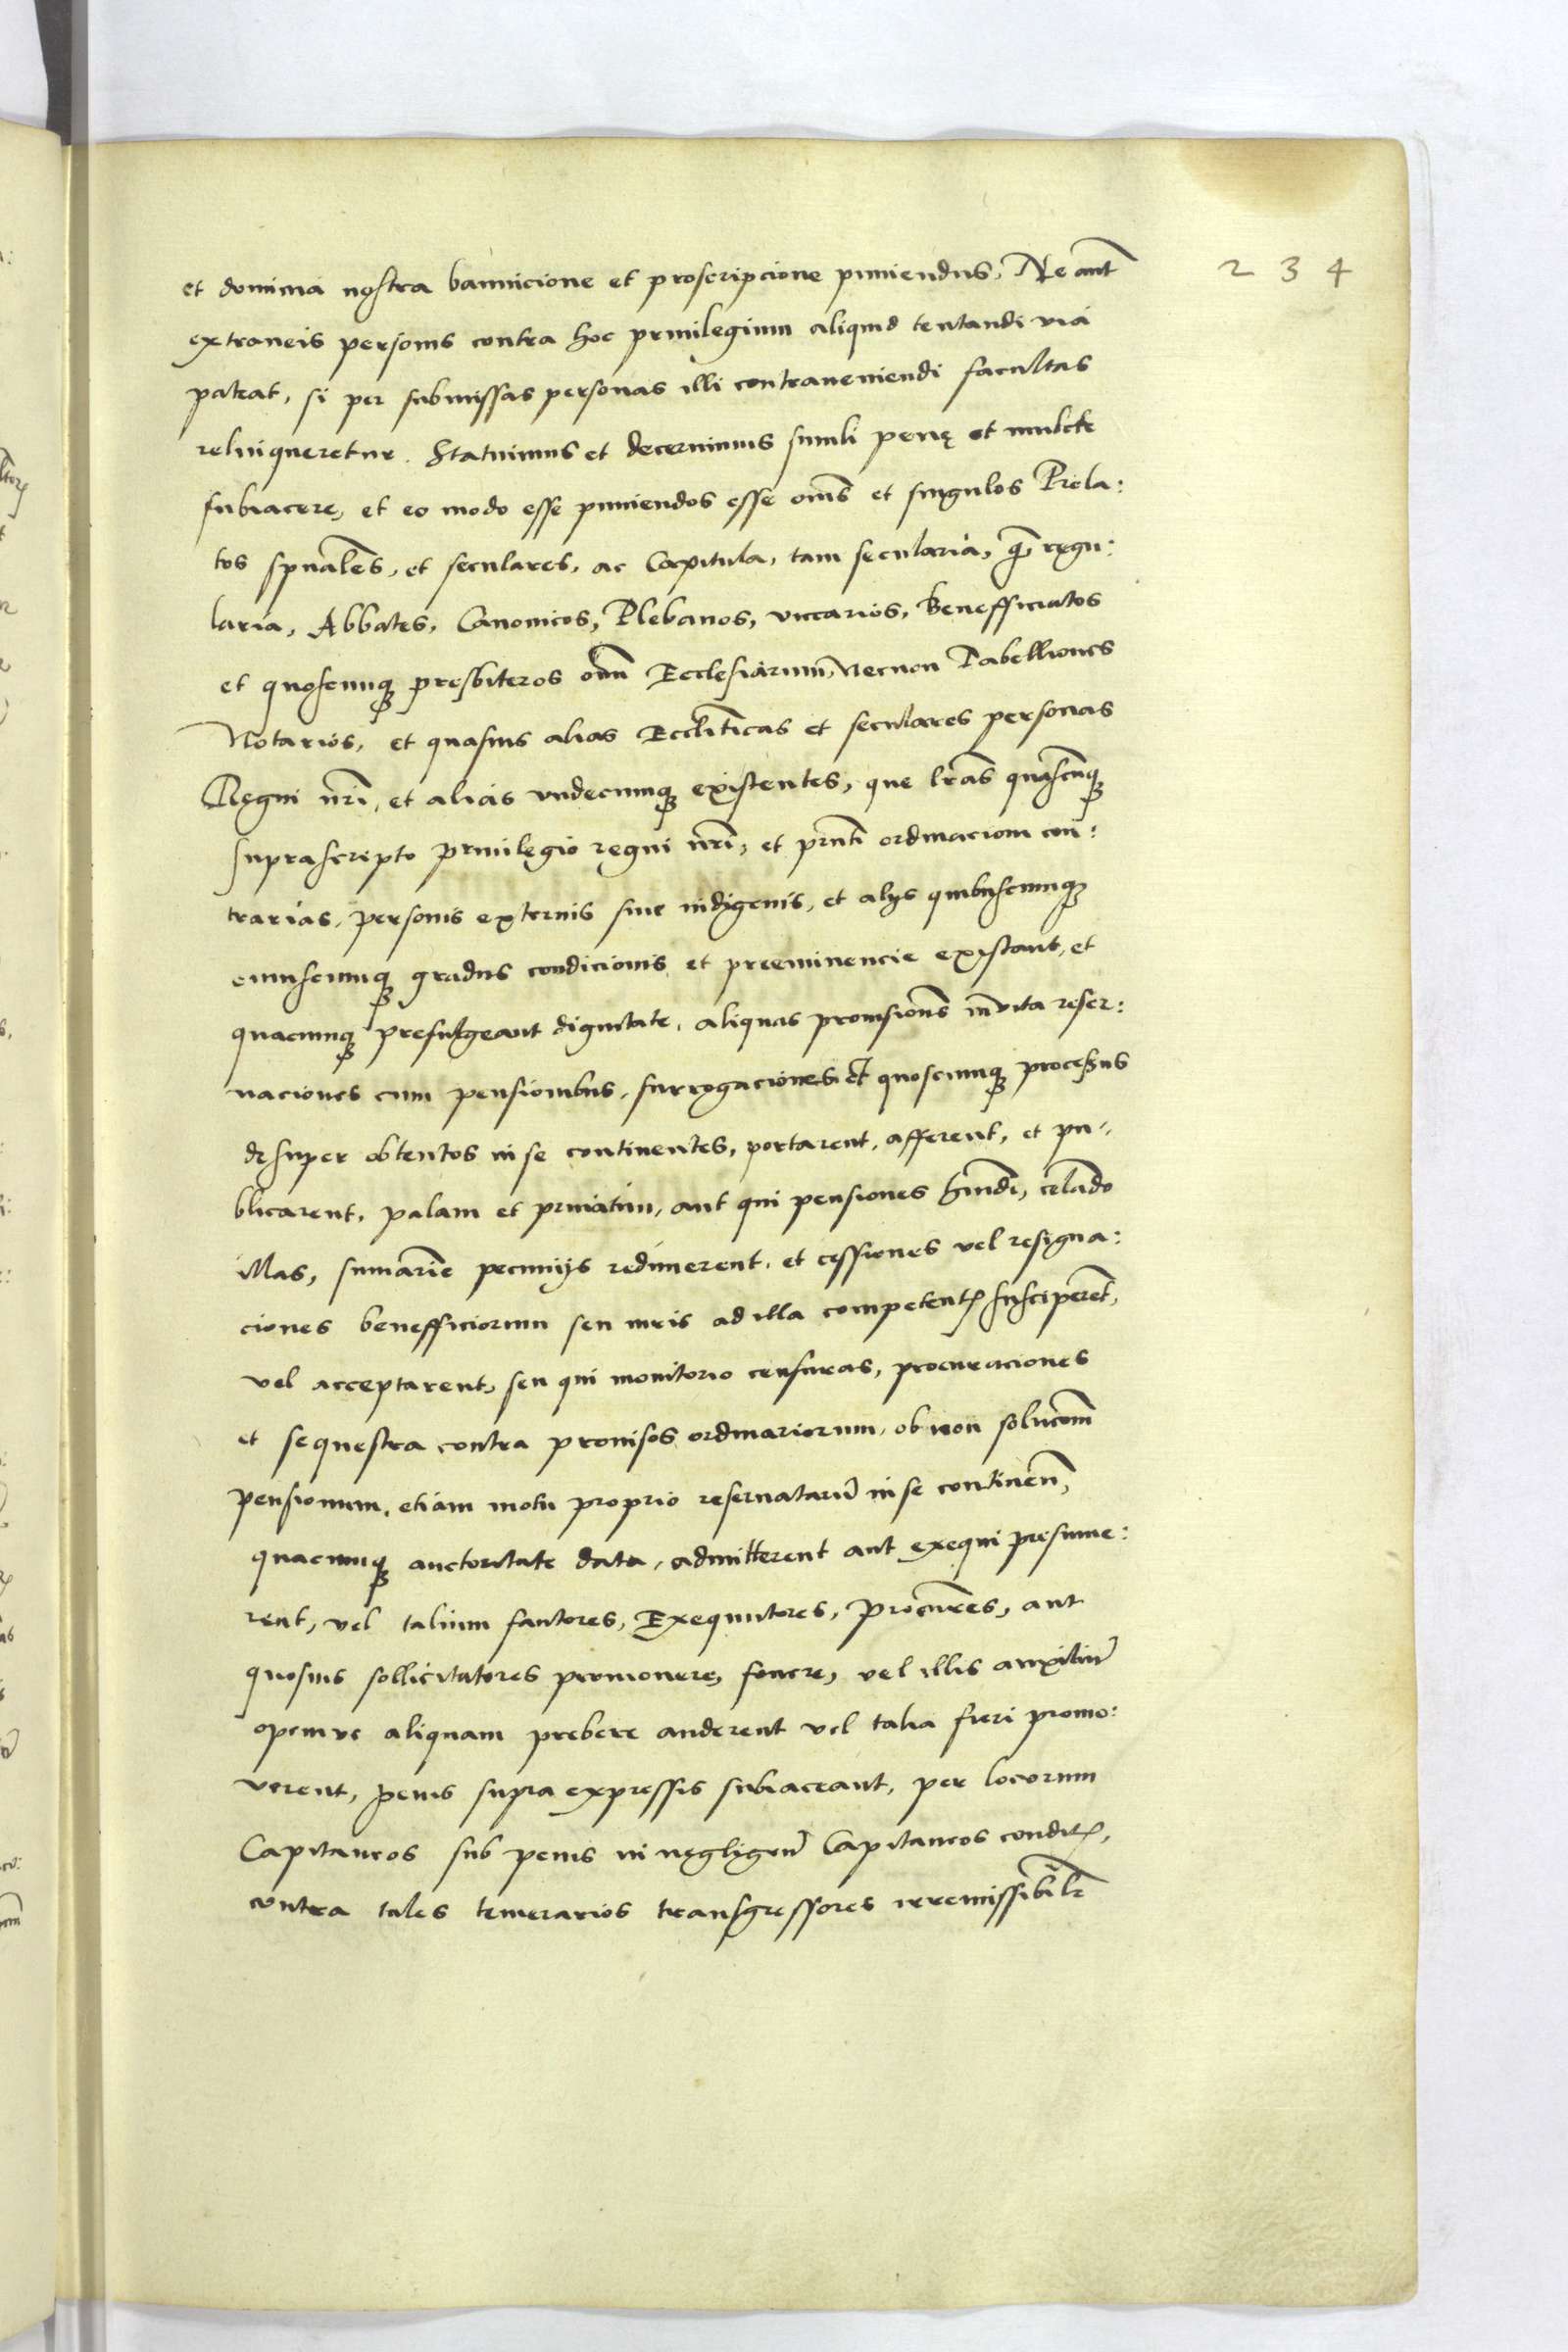 234
et dominia nostra bannicione et proscripcione puniendus, Ne aut̃
extraneis personis contra hoc priuilegium aliquid tentandi uia
pateat, si per submissas personas illi contraueniendi facultas
relinqueretur. Statuimus et decernimus simili penę et mulcte
subiacere, et eo modo esse puniendos esse oẽs et singulos Prela:
tos spũales, et seculares, ac Capitula, tam secularia, q̃ regu:
laria, Abbates, Canonicos, Plebanos, viccarios, Benefficiatos
et quoscunq presbiteros oĩm Ecclesiarum, Necnon Tabelliones
Notarios, et quasuis alias Ecclĩticas et seculares personas
Regni nr̃i, et alias vndecunq existentes, que lr̃as quascũq
suprascripto priuilegio regni nr̃i, et pr̃nti ordinacioni con:
trarias, personis externis siue indigenis, et alijs quibuscunq
cuiuscunq gradus condicionis et preeminencie existant, et
quacunq prefulgeant dignitate, aliquas prouisiones in uita reser:
uaciones cum pensionibus, surrogaciones et quoscunq processus
desuper obtentos in se continentes, portarent, afferent, et pu:
blicarent, palam et priuatim, aut qui pensiones hm̃di, celãdo
illas, sum̃arie pecunijs redimerent, et cessiones vel resigna:
ciones benefficiorum seu iuris ad illa competentis susciperẽt,
vel acceptarent, seu qui monitorio censuras, procuraciones
et sequestra contra prouisos ordinariorum, ob non solucõem
pensionum, etiam motu proprio reseruatarũ in se continen̄,
quacunq auctoritate data, admitterent aut exequi presume:
rent, vel talium fautores, Exequutores, Procur̃es, aut
quosuis sollicitatores promouere, fouere, vel illis auxiliũ
opemue aliquam prebere auderent vel talia fieri promo:
verent, penis supra expressis subiaceant, per locorum
Capitaneos sub penis in negligen̄ Capitaneos conditis,
contra tales temerarios transgressores irremissibilr̃